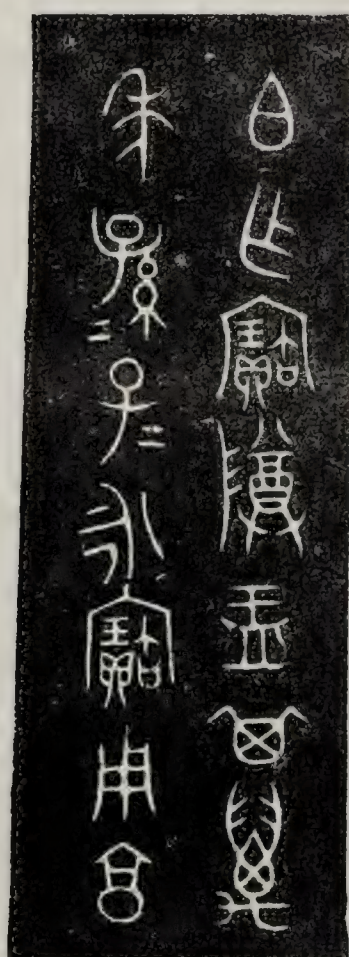 白乍寶尊盂其萬
年孫₌子₌永寶用亯